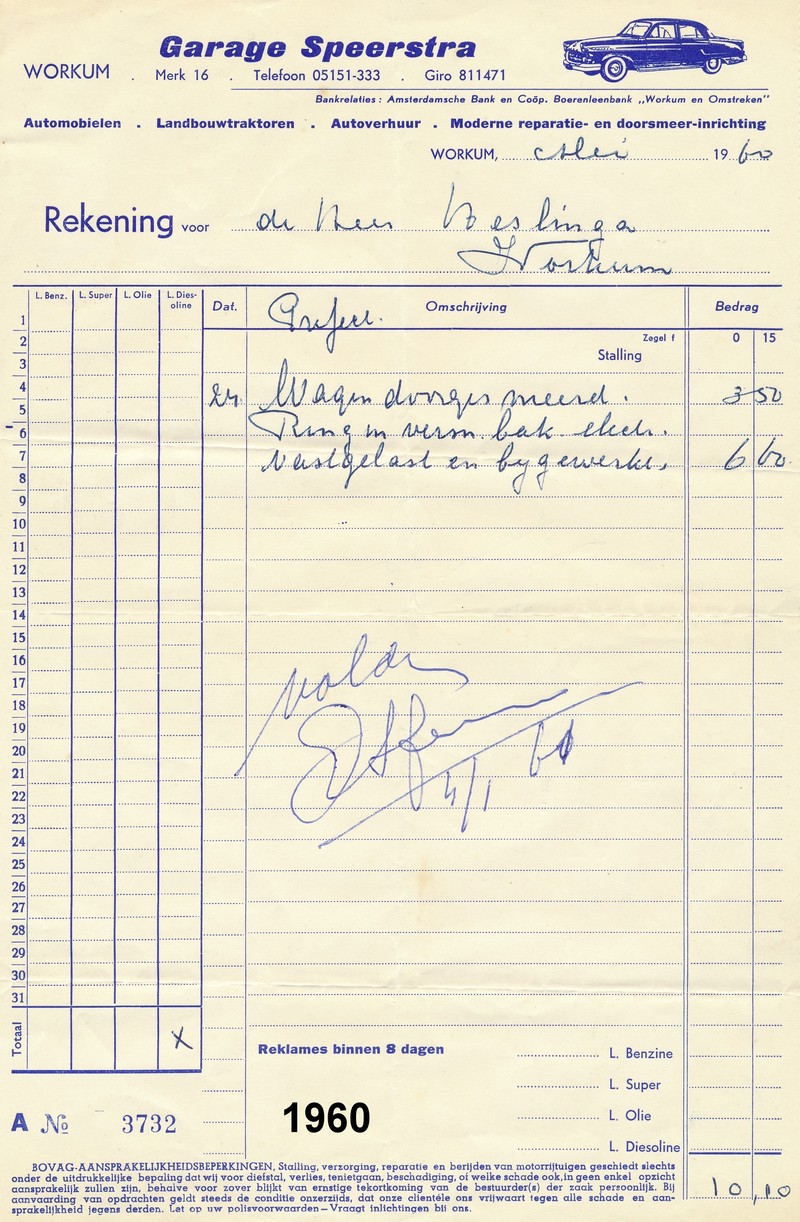 Garage Speerstra
WORKUM . Merk 16 . Telefoon 05151-333 . Giro 811471
Bankrelaties: Amsterdamsche Bank en Coöp. Boerenleenbank „Workum en Omstreken”
Automobielen . Landbouwtraktoren . Autoverhuur . Moderne reparatie- en doorsmeer-inrichting
WORKUM, Mei 1960
Rekening voor de Heer Weslinga
Workum
L. Benz. L. Super L. Olie L. Dies-oline Dat. Prefect. Omschrijving Bedrag
1
2 Zegel f 0 15
3 Stalling
4 24 Wagen doorgesmeerd. 3 50
5
6 Ring in versn. bak elech.
7 vastgelast en bygewerkt, 6 60
8
9
10
11
12
13
14
15
16
17 voldn
18
19
20
21 4/1 61
22
23
24
25
26
27
28
29
30
31
Totaal X
Reklames binnen 8 dagen
L. Benzine
L. Super
L. Olie
L. Diesoline
A № 3732
1960
10,10
BOVAG-AANSPRAKELIJKHEIDSBEPERKINGEN, Stalling, verzorging, reparatie en berijden van motorrijtuigen geschiedt slechts
onder de uitdrukkelijke bepaling dat wij voor diefstal, verlies, tenietgaan, beschadiging, of welke schade ook, in geen enkel opzicht
aansprakelijk zullen zijn, behalve voor zover blijkt van ernstige tekortkoming van de bestuurder(s) der zaak persoonlijk. Bij
aanvaarding van opdrachten geldt steeds de conditie onzerzijds, dat onze clientéle ons vrijwaart tegen alle schade en aan-
sprakelijkheid jegens derden. Let op uw polisvoorwaarden—Vraagt inlichtingen bij ons.